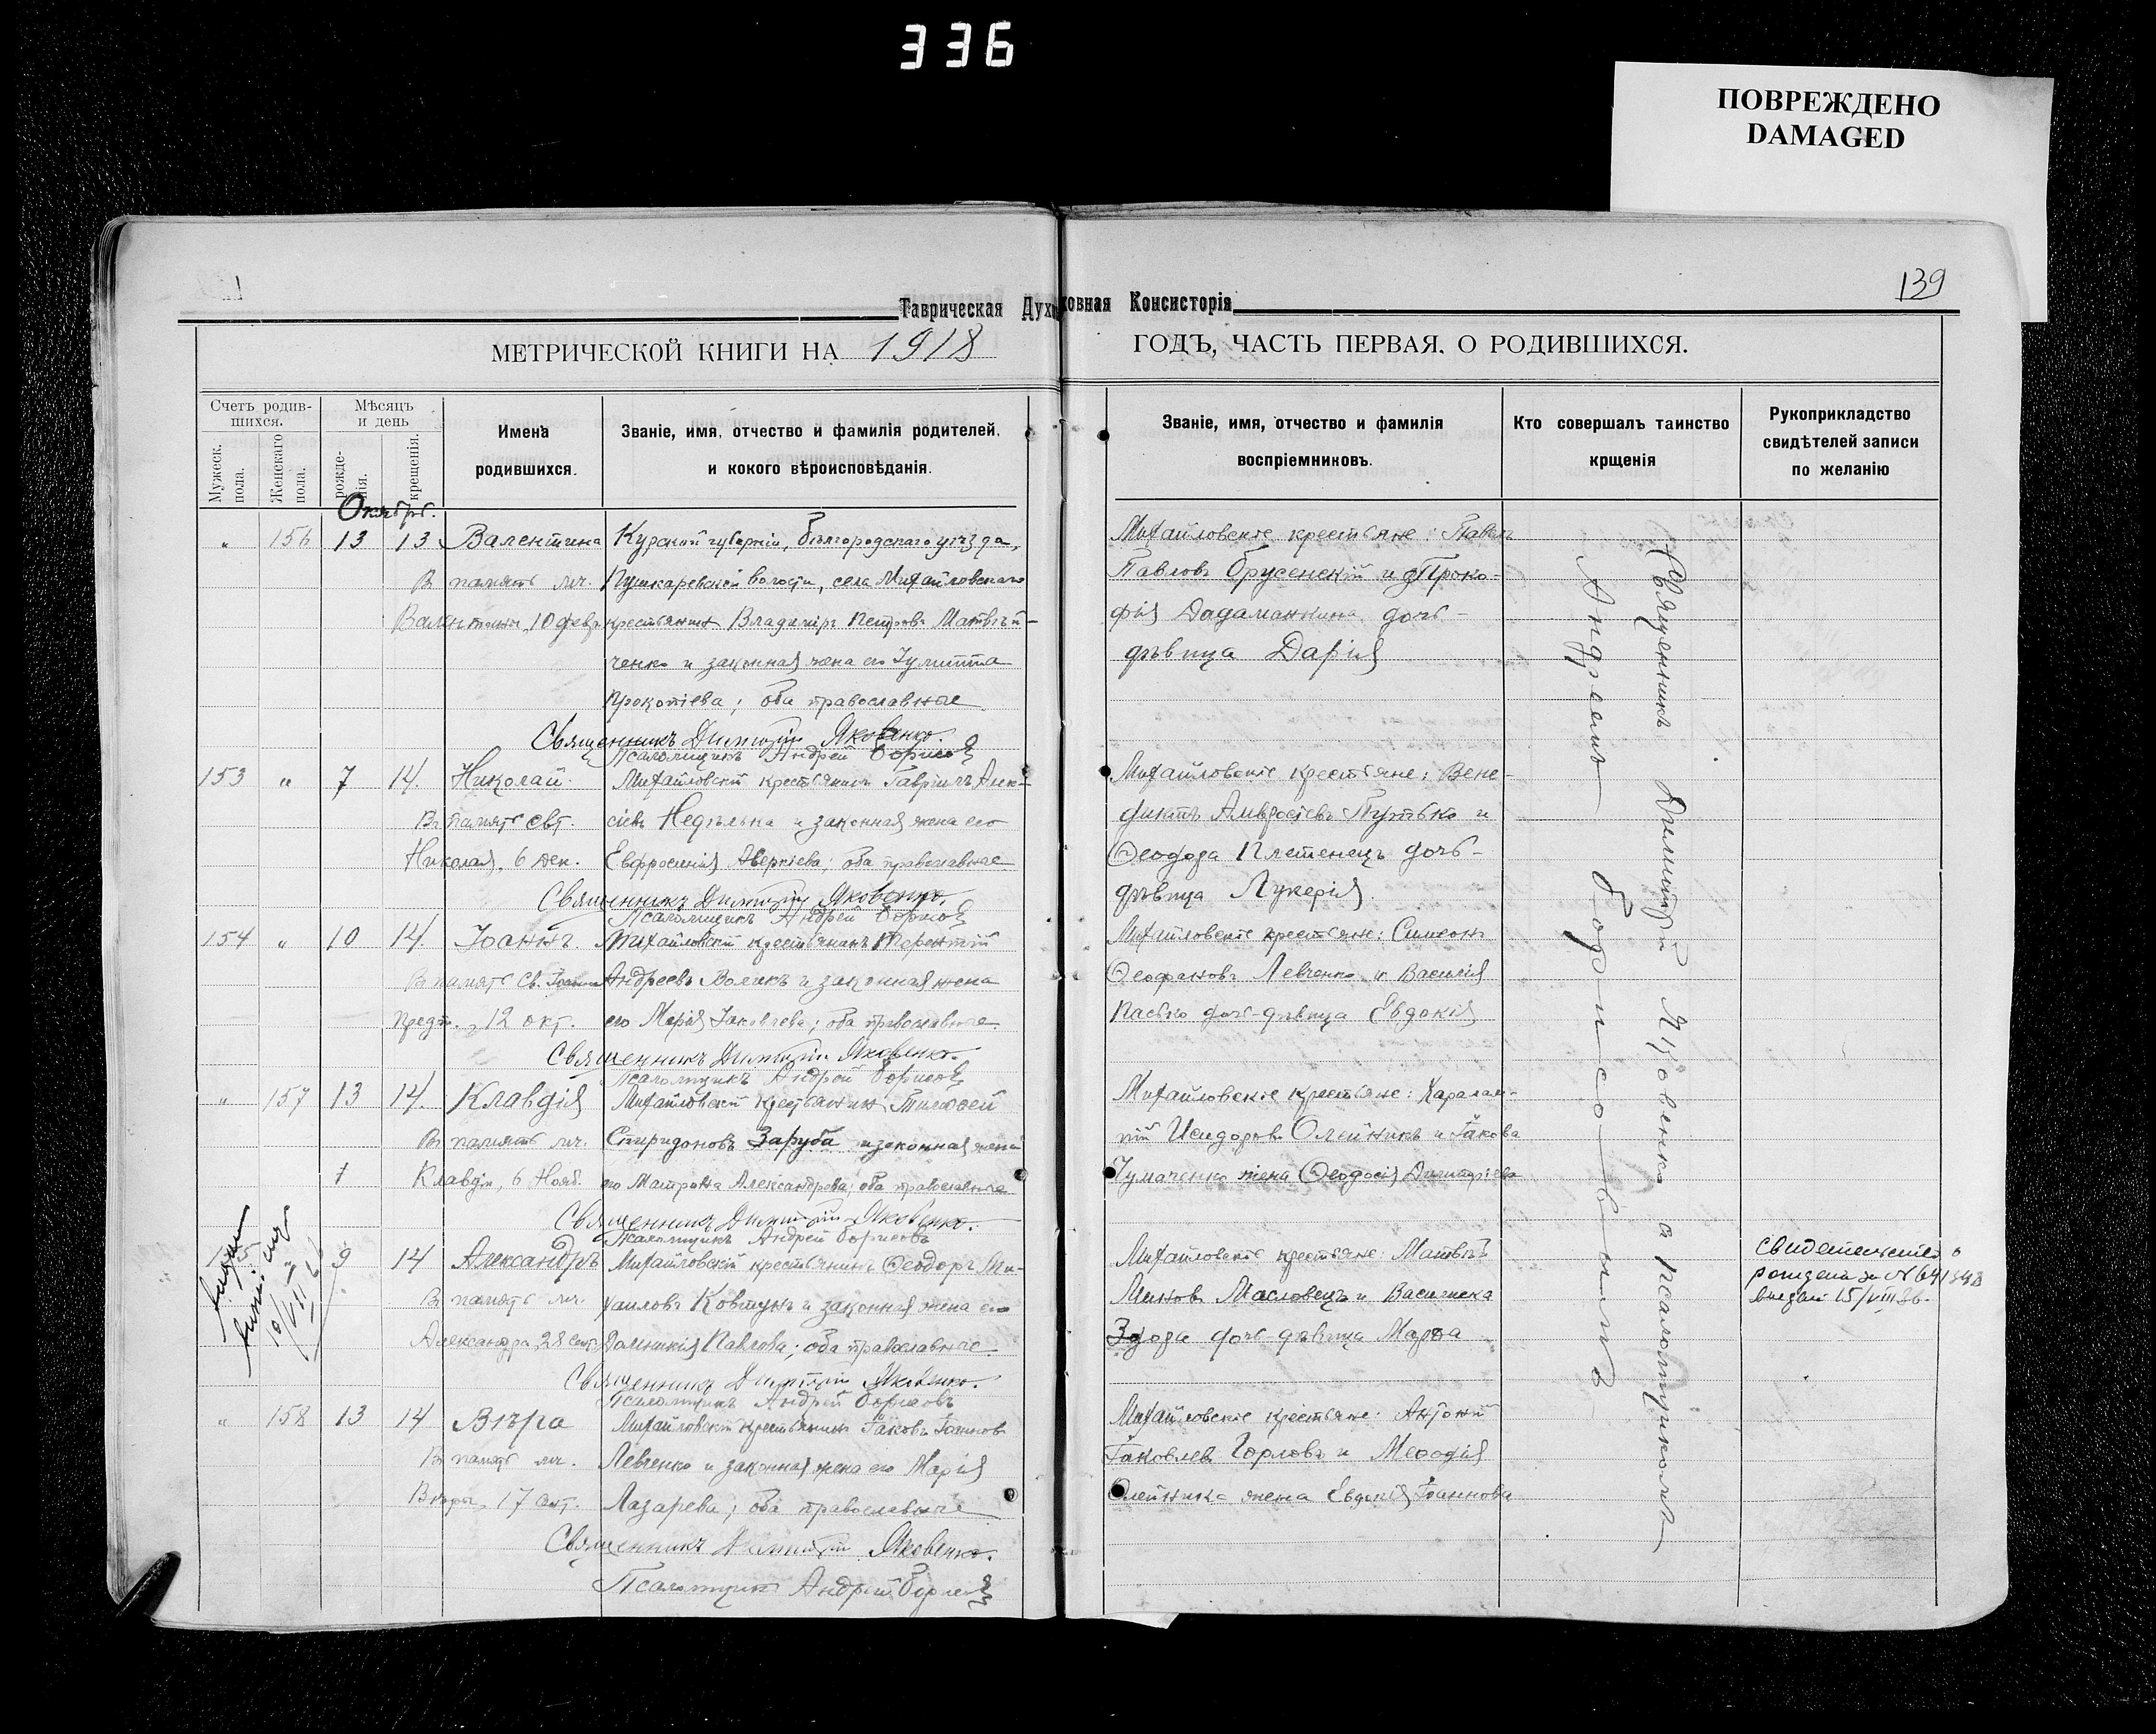 336
ПОВРЕЖДЕНО
DAMAGED
139
Таврическая Духовная Консисторія
МЕТРИЧЕСКОЙ КНИГИ НА 1918
ГОДЪ, ЧАСТЬ ПЕРВАЯ. О РОДИВШИХСЯ.
Счетъ родив-
шихся.
Мужеск.
пола.
Женскаго
пола.
Мѣсяцъ
и день
рожде-
нія.
крещенія.
Имена
родившихся.
Званіе, имя, отчество и фамилія родителей,
и кокого вѣроисповѣданія.
Званіе, имя, отчество и фамилія
воспріемниковъ.
Кто совершалъ таинство
крщенія
Рукоприкладство
свидѣтелей записи
по желанію
Октябрь.
" 156 13 13 Валентина Курской губерніи, Бѣлгородскаго уѣзда,
В память мч. Пушкаревской волости, села Михайловскаго
10 февр. крестьянин Владимір Петровъ Матвѣй-
ченко и законная жена его Іулитта
Прокопіева; оба православные
Священникъ Димитрій Яковенко.
Псаломщикъ Андрей Борисов
Михайловскіе крестьяне: Павелъ
Павловъ Брусенскій и Проко-
фія дочь-
дѣвица Дарія
153 " 7 14. Николай. Михайловскій крестьянинъ Гавріилъ
Въ память свт. Недѣлька и законная жена его
Николая, 6 дек. Евфросинія Аверкіева; оба православные
Священникъ Димитрій Яковенко.
Псаломщикъ Андрей Борисов
Михайловскіе крестьяне: Вене-
диктъ Амвросіевъ Путько и
Ѳеодора Плетенецъ дочь-
дѣвица Лукерія
154 " 10 14. Іоаннъ. Михайловскій крестьянинъ Терентій
В память Св. Іоанна Андреевъ Воликъ и законная жена
Предт., 12 окт. его Марія Іаковлева; оба православные
Священникъ Димитрій Яковенко.
Псаломщикъ Андрей Борисов
Михайловскіе крестьяне: Симеонъ
Ѳеофановъ Левченко и Василія
Пасько дочь-дѣвица Евдокія
" 157 13 14. Клавдія Михайловскій крестьянин Тимоѳей
В память мч. Спиридоновъ Заруба и законная жена
Клавдіи, 6 Нояб. его Матрона Александрова; оба православные
Священникъ Димитрій Яковенко.
Псаломщикъ Андрей Борисовъ
Михайловскіе крестьяне: Харалам-
пій Исидоровъ Олейникъ и Іакова
Чумаченко жена Ѳеодосія Димитріева
9 14 Александръ Михайловскій крестьянинъ Ѳеодоръ Ми-
В память мч. хаиловъ Ковтунъ и законная жена его
Александра, 28 сент. Домникія Павлова; оба православные
Священникъ Димитрій Яковенко.
Псаломщикъ Андрей Борисовъ
Михайловскіе крестьяне: Матвѣй
Миновъ Масловецъ и
дочь-дѣвица Марѳа
Свидетельство о
рождении за №
выдан 15/VIII 36.
" 158 13 14 Вѣра Михайловскій крестьянин Іаковъ Іоанновъ
В память мч. Левченко и законная жена его Марія
Вѣры, 17 сент. Лазарева; оба православные
Священникъ Димитрій Яковенко.
Псаломщикъ Андрей Борисов
Михайловскіе крестьяне: Антоній
Іаковлевъ Горловъ и Меѳодія
Олейника жена Евдокія Іоаннова
Священникъ Димитрій Яковенко съ псаломщикомъ
Андреемъ Борисовымъ